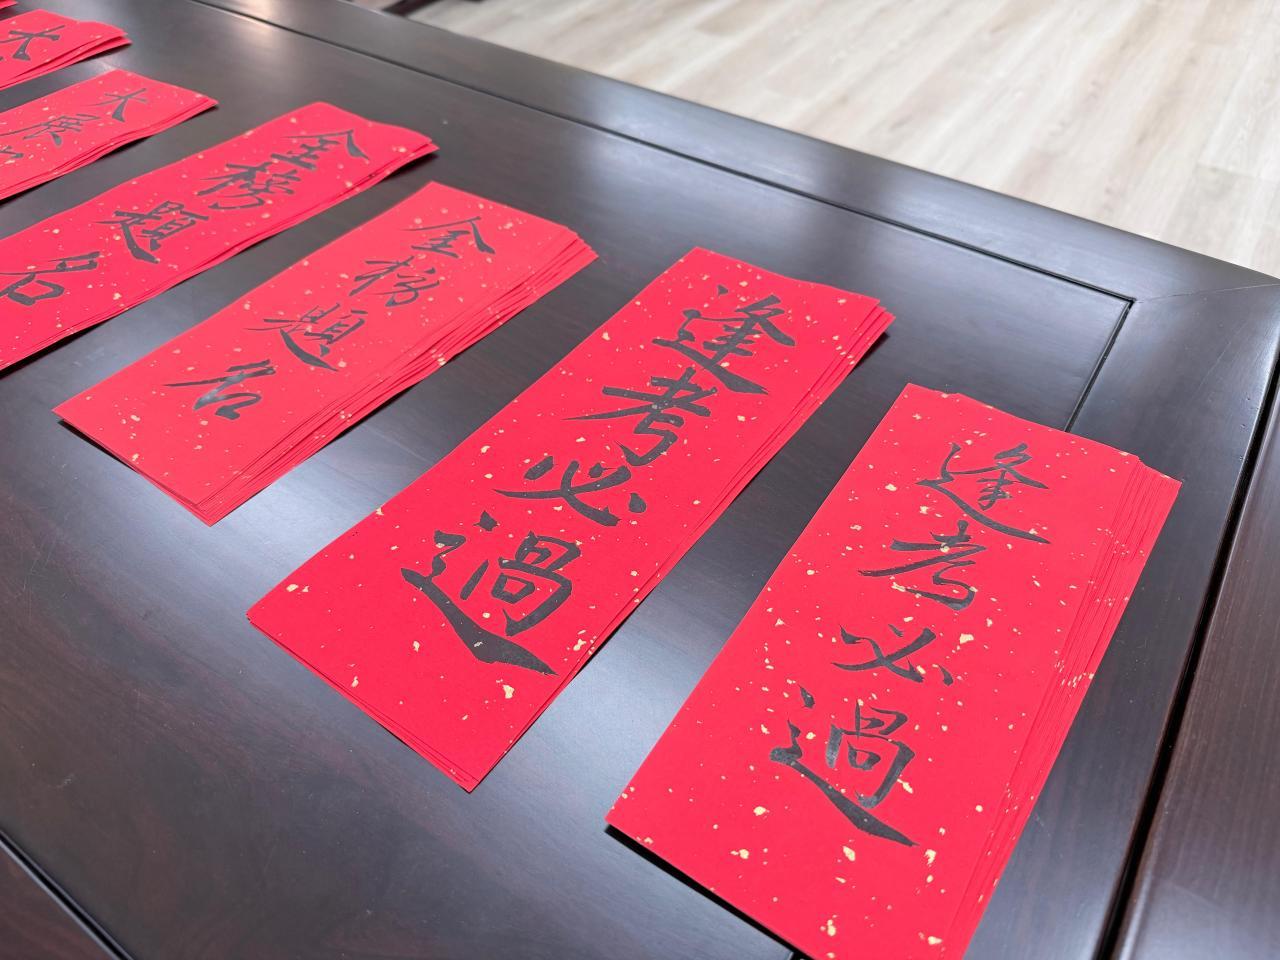 逢考必過
逢考必過
金榜題名
金榜題名
大展
大